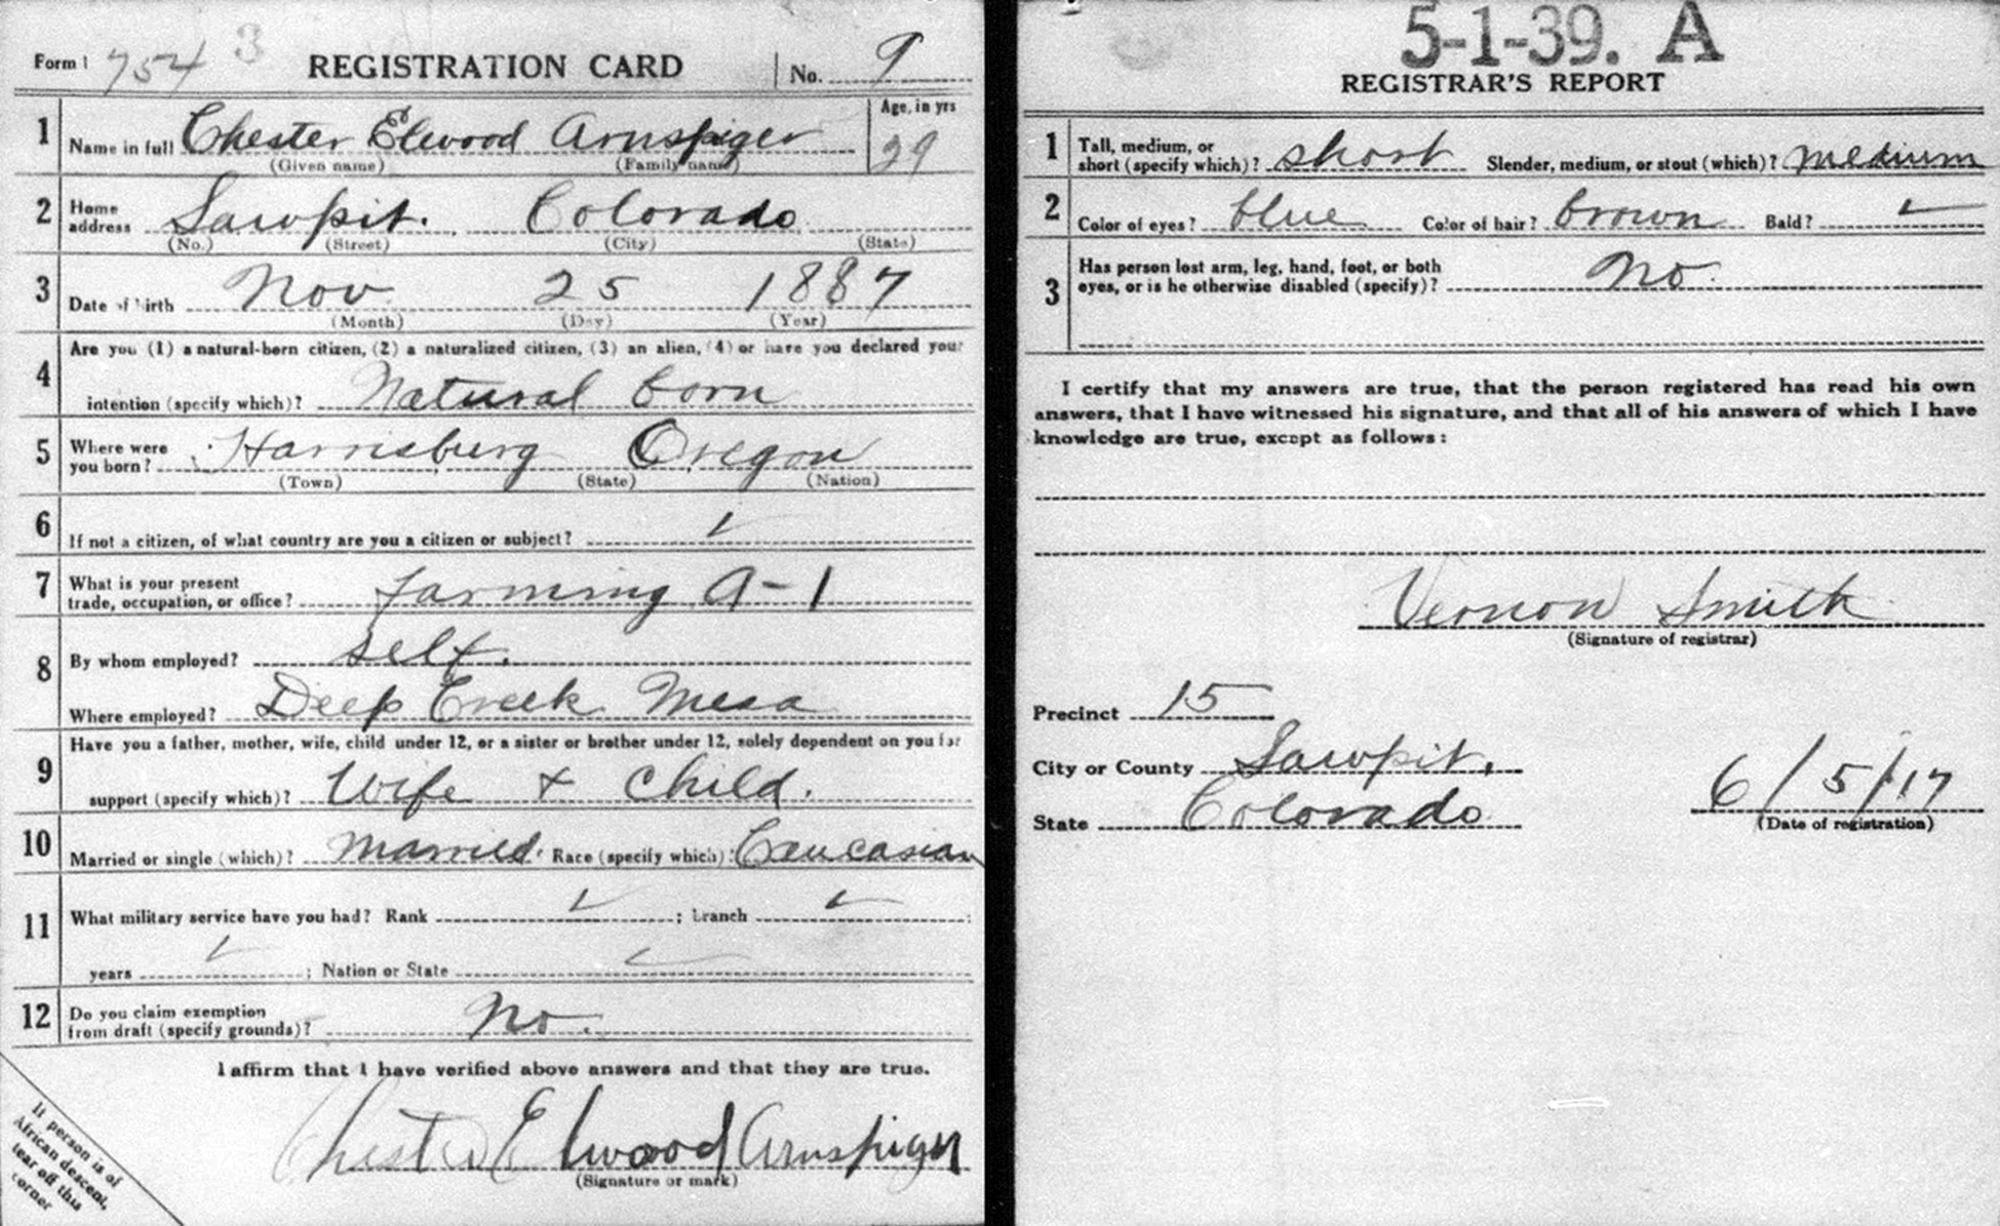 Form 1 754 3 REGISTRATION CARD No. 9
1 Name in full Chester Elwood Arnspiger Age, in yrs 29
(Given name) (Family name)
2 Home address Sawpit. Colorado
(No.) (Street) (City) (State)
3 Date of birth Nov 25 1887
(Month) (Day) (Year)
4 Are you (1) a natural-born citizen, (2) a naturalized citizen, (3) an alien, (4) or have you declared your
intention (specify which)? Natural born
5 Where were you born? Harrisburg Oregon
(Town) (State) (Nation)
6 If not a citizen, of what country are you a citizen or subject? ✓
7 What is your present trade, occupation, or office? farming A-1
8 By whom employed? self.
Where employed? Deep Creek Mesa
9 Have you a father, mother, wife, child under 12, or a sister or brother under 12, solely dependent on you for
support (specify which)? Wife + Child.
10 Married or single (which)? Married. Race (specify which)? Caucasian
11 What military service have you had? Rank ✓ ; branch ✓ ;
years ✓ ; Nation or State ✓
12 Do you claim exemption from draft (specify grounds)? No.
I affirm that I have verified above answers and that they are true.
Chester Elwood Arnspiger
(Signature or mark)
If person is of
African descent,
tear off this
corner
5-1-39. A
REGISTRAR'S REPORT
1 Tall, medium, or short (specify which)? short Slender, medium, or stout (which)? medium
2 Color of eyes? blue Color of hair? brown Bald? ✓
3 Has person lost arm, leg, hand, foot, or both eyes, or is he otherwise disabled (specify)? No.
I certify that my answers are true, that the person registered has read his own
answers, that I have witnessed his signature, and that all of his answers of which I have
knowledge are true, except as follows:
Vernon Smith
(Signature of registrar)
Precinct 15
City or County Sawpit.
State Colorado 6/5/17
(Date of registration)